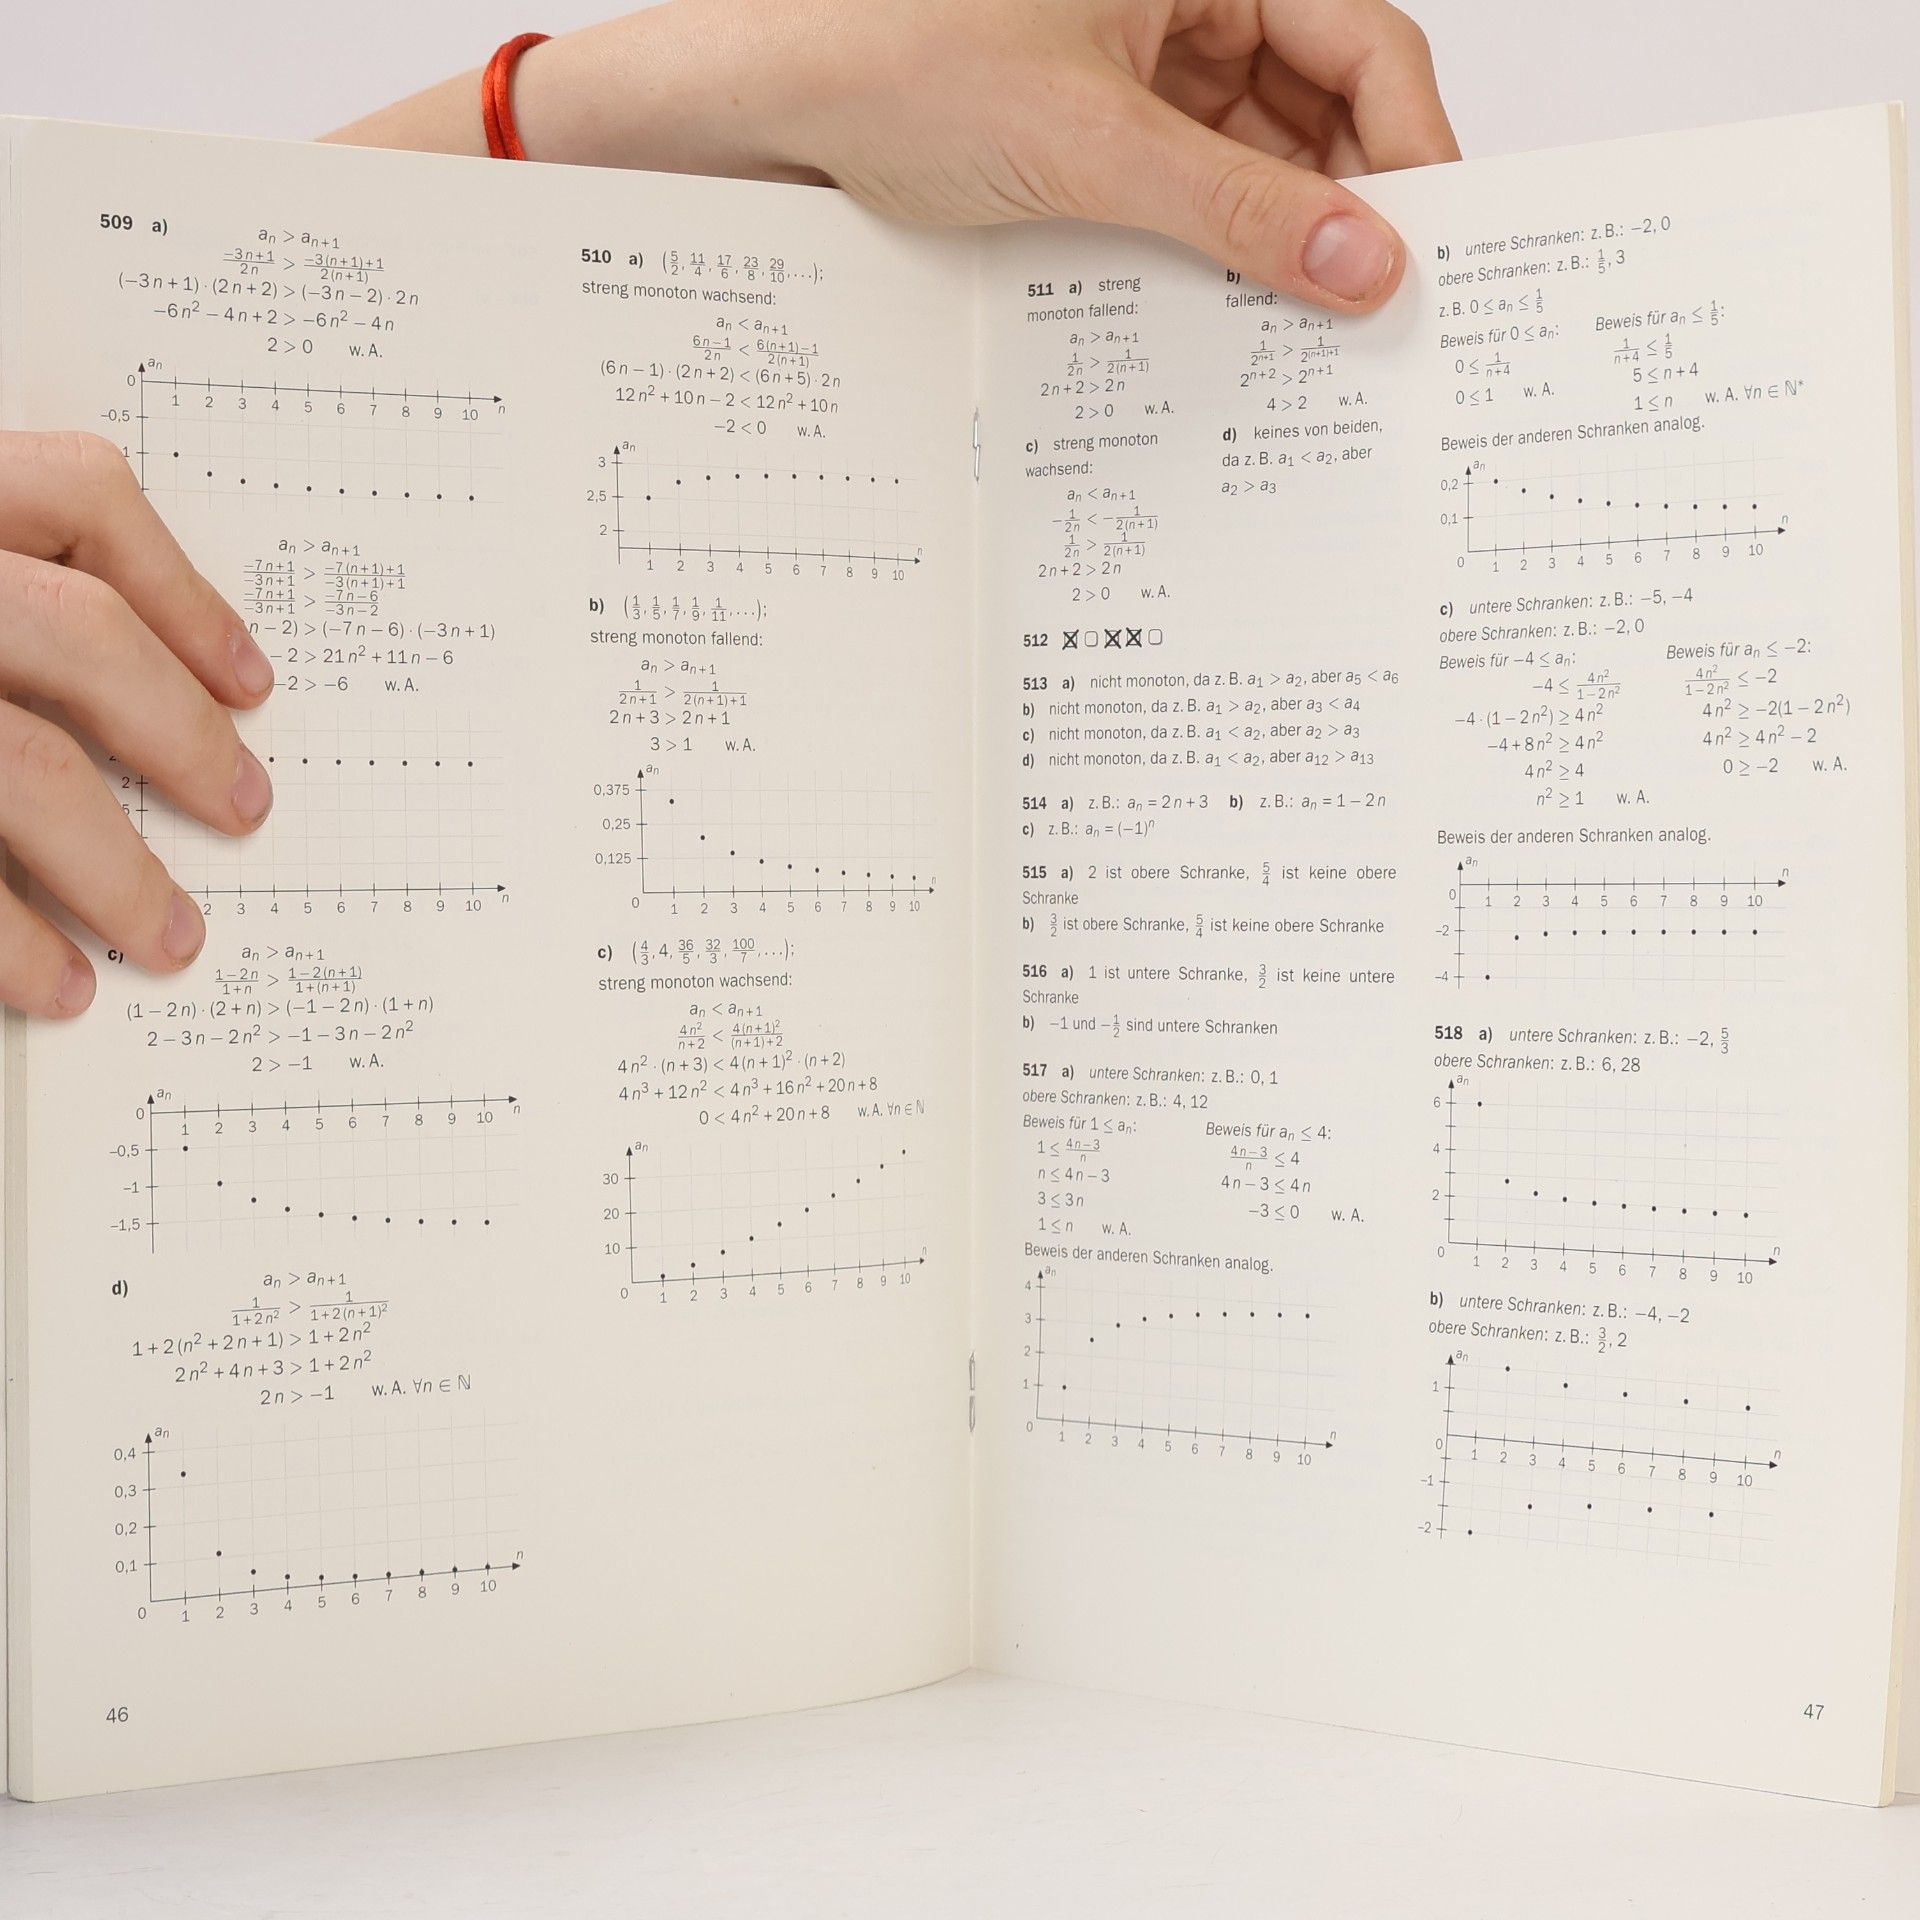 509 a)
aₙ > aₙ₊₁
(−3n+1)/(2n) > (−3(n+1)+1)/(2(n+1))
(−3n+1)·(2n+2) > (−3n−2)·2n
−6n² − 4n + 2 > −6n² − 4n
2 > 0 w.A.
aₙ
0
1 2 3 4 5 6 7 8 9 10 n
−0,5
1
aₙ > aₙ₊₁
(−7n+1)/(−3n+1) > (−7(n+1)+1)/(−3(n+1)+1)
(−7n+1)/(−3n+1) > (−7n−6)/(−3n−2)
n − 2) > (−7n − 6)·(−3n + 1)
− 2 > 21n² + 11n − 6
−2 > −6 w.A.
2
5
2 3 4 5 6 7 8 9 10 n
c)
aₙ > aₙ₊₁
(1−2n)/(1+n) > (1−2(n+1))/(1+(n+1))
(1 − 2n)·(2 + n) > (−1 − 2n)·(1 + n)
2 − 3n − 2n² > −1 − 3n − 2n²
2 > −1 w.A.
aₙ
0
1 2 3 4 5 6 7 8 9 10 n
−0,5
−1
−1,5
d)
aₙ > aₙ₊₁
1/(1+2n²) > 1/(1+2(n+1)²)
1 + 2(n² + 2n + 1) > 1 + 2n²
2n² + 4n + 3 > 1 + 2n²
2n > −1 w.A. ∀n ∈ ℕ
aₙ
0,4
0,3
0,2
0,1
0 1 2 3 4 5 6 7 8 9 10 n
46
510 a) (5/2, 11/4, 17/6, 23/8, 29/10, ...);
streng monoton wachsend:
aₙ < aₙ₊₁
(6n−1)/(2n) < (6(n+1)−1)/(2(n+1))
(6n − 1)·(2n + 2) < (6n + 5)·2n
12n² + 10n − 2 < 12n² + 10n
−2 < 0 w.A.
aₙ
3
2,5
2
1 2 3 4 5 6 7 8 9 10 n
b) (1/3, 1/5, 1/7, 1/9, 1/11, ...);
streng monoton fallend:
aₙ > aₙ₊₁
1/(2n+1) > 1/(2(n+1)+1)
2n + 3 > 2n + 1
3 > 1 w.A.
aₙ
0,375
0,25
0,125
0 1 2 3 4 5 6 7 8 9 10 n
c) (4/3, 4, 36/5, 32/3, 100/7, ...);
streng monoton wachsend:
aₙ < aₙ₊₁
4n²/(n+2) < 4(n+1)²/((n+1)+2)
4n²·(n + 3) < 4(n + 1)²·(n + 2)
4n³ + 12n² < 4n³ + 16n² + 20n + 8
0 < 4n² + 20n + 8 w.A. ∀n ∈ ℕ
aₙ
30
20
10
0 1 2 3 4 5 6 7 8 9 10 n
511 a) streng
monoton fallend:
aₙ > aₙ₊₁
1/(2n) > 1/(2(n+1))
2n + 2 > 2n
2 > 0 w.A.
b)
fallend:
aₙ > aₙ₊₁
1/2ⁿ⁺¹ > 1/2⁽ⁿ⁺¹⁾⁺¹
2ⁿ⁺² > 2ⁿ⁺¹
4 > 2 w.A.
c) streng monoton
wachsend:
aₙ < aₙ₊₁
−1/(2n) < −1/(2(n+1))
1/(2n) > 1/(2(n+1))
2n + 2 > 2n
2 > 0 w.A.
d) keines von beiden,
da z.B. a₁ < a₂, aber
a₂ > a₃
512 ☒ ☐ ☒ ☒ ☐
513 a) nicht monoton, da z.B. a₁ > a₂, aber a₅ < a₆
b) nicht monoton, da z.B. a₁ > a₂, aber a₃ < a₄
c) nicht monoton, da z.B. a₁ < a₂, aber a₂ > a₃
d) nicht monoton, da z.B. a₁ < a₂, aber a₁₂ > a₁₃
514 a) z.B.: aₙ = 2n + 3 b) z.B.: aₙ = 1 − 2n
c) z.B.: aₙ = (−1)ⁿ
515 a) 2 ist obere Schranke, 5/4 ist keine obere
Schranke
b) 3/2 ist obere Schranke, 5/4 ist keine obere Schranke
516 a) 1 ist untere Schranke, 3/2 ist keine untere
Schranke
b) −1 und −1/2 sind untere Schranken
517 a) untere Schranken: z.B.: 0, 1
obere Schranken: z.B.: 4, 12
Beweis für 1 ≤ aₙ:
1 ≤ (4n−3)/n
n ≤ 4n − 3
3 ≤ 3n
1 ≤ n w.A.
Beweis für aₙ ≤ 4:
(4n−3)/n ≤ 4
4n − 3 ≤ 4n
−3 ≤ 0 w.A.
Beweis der anderen Schranken analog.
aₙ
4
3
2
1
0 1 2 3 4 5 6 7 8 9 10 n
b) untere Schranken: z.B.: −2, 0
obere Schranken: z.B.: 1/5, 3
z.B. 0 ≤ aₙ ≤ 1/5
Beweis für 0 ≤ aₙ:
0 ≤ 1/(n+4)
0 ≤ 1 w.A.
Beweis für aₙ ≤ 1/5:
1/(n+4) ≤ 1/5
5 ≤ n + 4
1 ≤ n w.A. ∀n ∈ ℕ*
Beweis der anderen Schranken analog.
aₙ
0,2
0,1
0 1 2 3 4 5 6 7 8 9 10 n
c) untere Schranken: z.B.: −5, −4
obere Schranken: z.B.: −2, 0
Beweis für −4 ≤ aₙ:
−4 ≤ 4n²/(1−2n²)
−4·(1 − 2n²) ≥ 4n²
−4 + 8n² ≥ 4n²
4n² ≥ 4
n² ≥ 1 w.A.
Beweis für aₙ ≤ −2:
4n²/(1−2n²) ≤ −2
4n² ≥ −2(1 − 2n²)
4n² ≥ 4n² − 2
0 ≥ −2 w.A.
Beweis der anderen Schranken analog.
aₙ
0 1 2 3 4 5 6 7 8 9 10 n
−2
−4
518 a) untere Schranken: z.B.: −2, 5/3
obere Schranken: z.B.: 6, 28
aₙ
6
4
2
0 1 2 3 4 5 6 7 8 9 10 n
b) untere Schranken: z.B.: −4, −2
obere Schranken: z.B.: 3/2, 2
aₙ
1
0 1 2 3 4 5 6 7 8 9 10 n
−1
−2
47